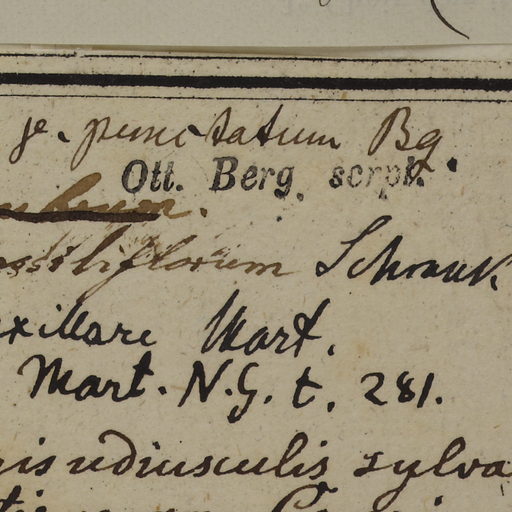 punctatum Bg.
Ott. Berg. scrps.
ssiliflorum Schrank.
xillare Mart.
Mart. N.G. t. 281.
is udiusculis sylva